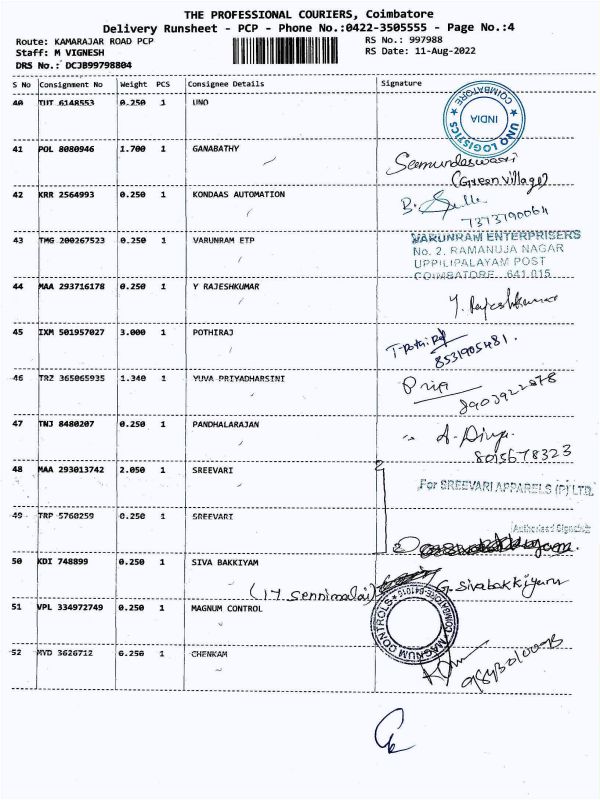 THE PROFESSIONAL COURIERS, Coimbatore
Delivery Runsheet - PCP - Phone No.:0422-3505555 - Page No.:4
Route: KAMARAJAR ROAD PCP
RS No.: 997988
Staff: M VIGNESH
RS Date: 11-Aug-2022
DRS No.: DCJB99798804
S No Consignment No Weight PCS Consignee Details Signature
40 TUT 6148553 0.250 1 UNO
UNO LOGISTICS ★ COIMBATORE ★
INDIA
41 POL 8080946 1.700 1 GANABATHY
(Green village)
42 KRR 2564993 0.250 1 KONDAAS AUTOMATION
7373190064
43 TMG 200267523 0.250 1 VARUNRAM ETP
VARUNRAM ENTERPRISERS
No. 2, RAMANUJA NAGAR
UPPILIPALAYAM POST
COIMBATORE 641 015
44 MAA 293716178 0.250 1 Y RAJESHKUMAR
Y. Rajeshkumar
45 IXM 501957027 3.000 1 POTHIRAJ
8531905481.
46 TRZ 365065935 1.340 1 YUVA PRIYADHARSINI
Priya
8903922878
47 TNJ 8480207 0.250 1 PANDHALARAJAN
A. Divya.
8015678323
48 MAA 293013742 2.050 1 SREEVARI
For SREEVARI APPARELS (P) LTD.
49 TRP 5760259 0.250 1 SREEVARI
Authorised Signatory
50 KDI 748899 0.250 1 SIVA BAKKIYAM
(17 sennimalai)
G. Sivabakkiyam
51 VPL 334972749 0.250 1 MAGNUM CONTROL
MAGNUM CONTROLS ★ COIMBATORE-641015 ★
52 MYD 3626712 0.250 1 CHENKAM